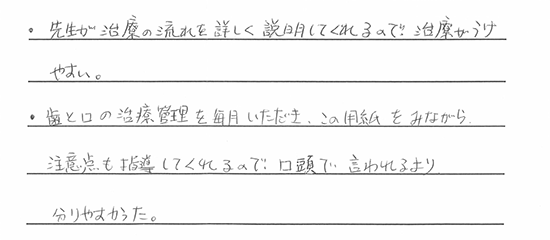 ・先生が治療の流れを詳しく説明してくれるので治療がうけ
やすい。
・歯と口の治療管理を毎月いただき、この用紙をみながら
注意点も指導してくれるので口頭で言われるより
分りやすかった。